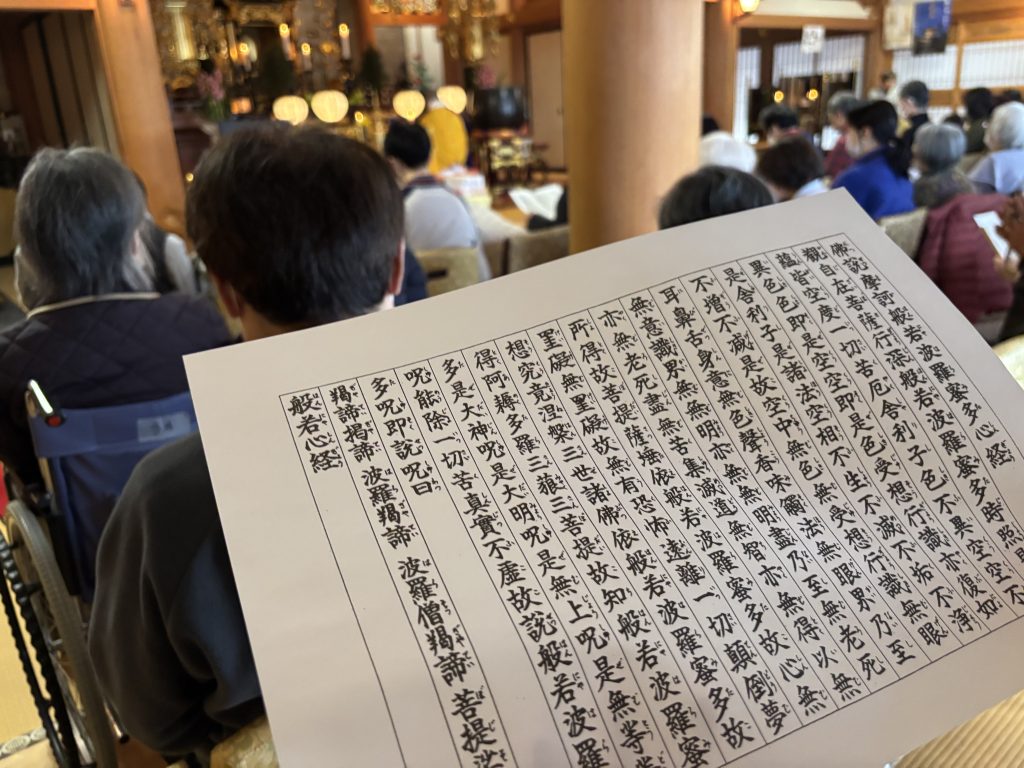 佛説摩訶般若波羅蜜多心経
觀自在菩薩行深般若波羅蜜多時照見
蘊皆空度一切苦厄舍利子色不異空空不
異色色即是空空即是色受想行識亦復如
是舍利子是諸法空相不生不滅不垢不淨
不増不減是故空中無色無受想行識無眼
耳鼻舌身意無色聲香味觸法無眼界乃至
無意識界無無明亦無無明盡乃至無老死
亦無老死盡無苦集滅道無智亦無得以無
所得故菩提薩埵依般若波羅蜜多故心無
罣礙無罣礙故無有恐怖遠離一切顛倒夢
想究竟涅槃三世諸佛依般若波羅蜜多故
得阿耨多羅三藐三菩提故知般若波羅蜜
多是大神呪是大明呪是無上呪是無等等
呪能除一切苦真實不虚故説般若波羅
多呪即説呪曰
羯諦羯諦 波羅羯諦 波羅僧羯諦 菩提
般若心経